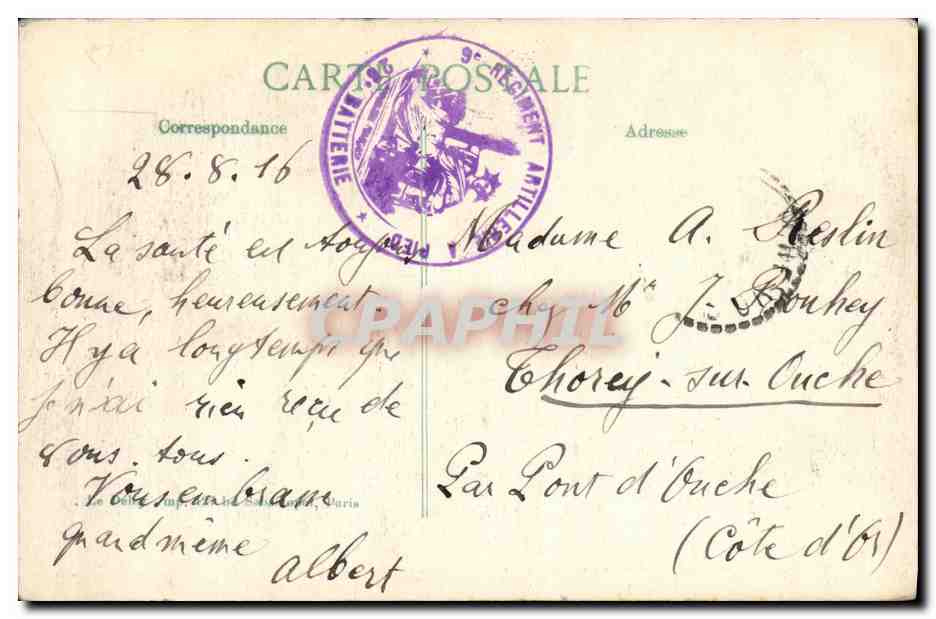 CARTE POSTALE
Correspondance
28.8.16
La santé est toujours
bonne, heureusement.
Il y a longtemps que
je n'ai rien reçu de
vous tous.
Vous embrasse
quand même
Albert
9e RÉGIMENT ARTILLERIE A PIED
26. BATTERIE
Adresse
Madame A. Reslin
chez Mr J. Bouhey
Thorey-sur-Ouche
Par Pont d'Ouche
(Côte d'Or)
CPAPHIL
Paris